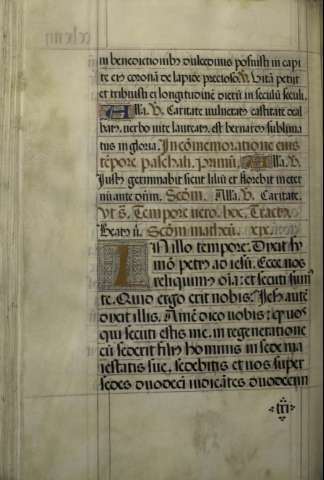 in benedictionibꝰ dulcedinis posuisti in capi
te eiꝰ coronā de lapide precioso. V. Vitā petijt
et tribuisti ei longitudinē dierū in seculū seculi.
Alla. V. Caritate vulneratꝰ castitate deal
batꝰ, verbo vite laureatꝰ, est bernardꝰ sublima
tus in gloria. In cōmemoratione eius
tēpore paschali. primū, Alla. V.
Justꝰ germinabit sicut liliū et florebit in eter
nū ante dñm. Scdm. Alla. V. Caritate.
vt s. Tempore vero. hoc. Tractꝰ.
Beatꝰ v. Scdm matheū. xix.
In illo tempore: Dixit sy
mō petrꝰ ad iesū. Ecce nos
reliquimꝰ oīa: et secuti sumꝰ
te. Quid ergo erit nobis: Iesꝰ autē
dixit illis. Amē dico vobis: qꝫ vos
qui secuti estis me, in regeneratione
cū sederit filiꝰ hominis in sede ma
iestatis sue, sedebitis et vos super
sedes duodecī iudicātes duodecim